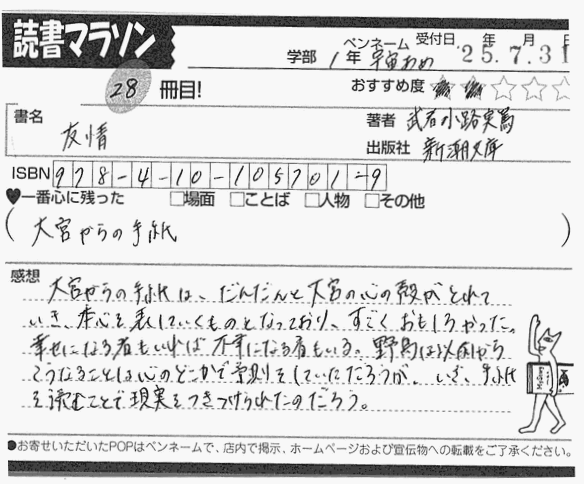 読書マラソン
学部 1年 ペンネーム 宇宙あめ 受付日 25.年7.月31日
28 冊目!
おすすめ度 ★★☆☆☆
書名 友情
著者 武者小路実篤
出版社 新潮文庫
ISBN 978-4-10-105701-9
♥一番心に残った □場面 □ことば □人物 □その他
(大宮からの手紙)
感想
大宮からの手紙は、だんだんと大宮の心の殻がとれて
いき、本心を表していくものとなっており、すごくおもしろかった。
幸せになる者もいれば不幸になる者もいる。野島は以前から
こうなることは心のどこかで予測をしていただろうが、いざ、手紙
を読むことで現実をつきつけられたのだろう。
●お寄せいただいたPOPはペンネームで、店内で掲示、ホームページおよび宣伝物への転載をご了承ください。